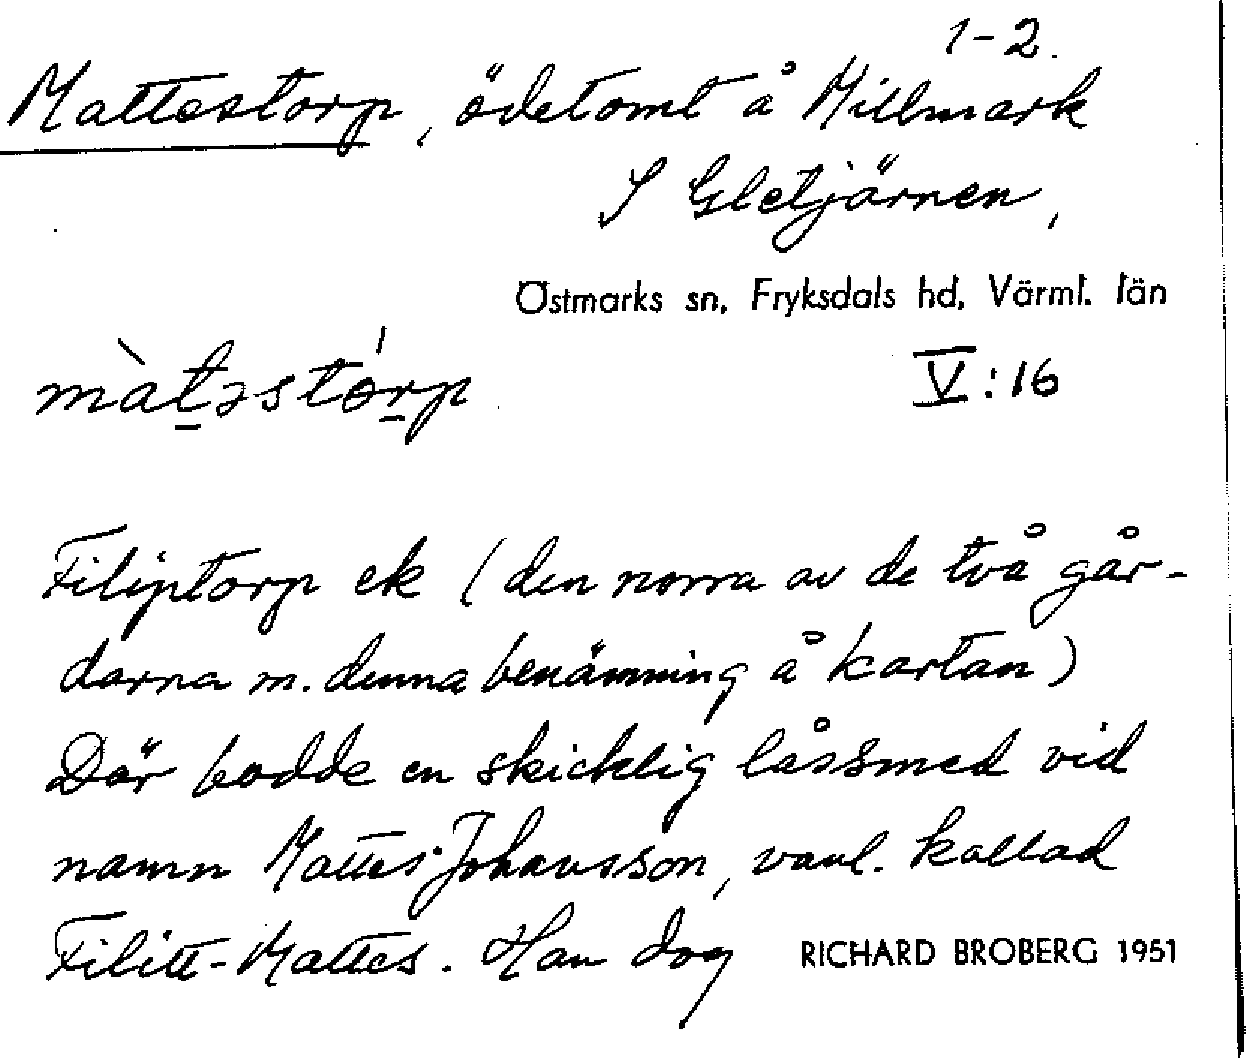 1-2.
Mattestorp, ödetomt å Millmark
S Gletjärnen,
Östmarks sn, Fryksdals hd, Värml. län
màtəstórp V:16
Filiptorp ek (den norra av de två går-
darna m. denna benämning å kartan)
Där bodde en skicklig låssmed vid
namn Mattes Johansson, vanl. kallad
Filitt-Mattes. Han dog RICHARD BROBERG 1951